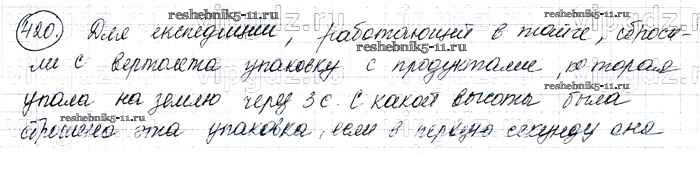 420. Для експедиции, работающий в тайге, сброси-
ли с вертолета упаковку с продуктами, которая
упала на землю через 3 с. С какой высоты была
сброшена эта упаковка, если в первую секунду она
reshebnik5-11.ru
reshebnik5-11.ru
reshebnik5-11.ru
reshebnik5-11.ru